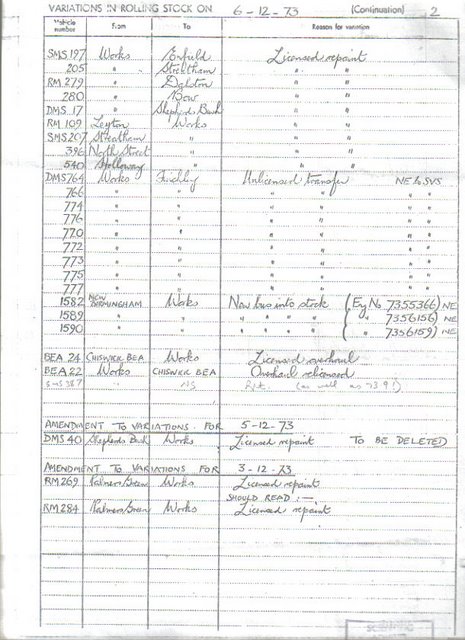 VARIATIONS IN ROLLING STOCK ON 6-12-73 (Continuation) 2
Vehicle number From To Reason for variation
SMS 197 Works Enfield Licensed repaint
205 " Streatham " "
RM 279 " Dalston " "
280 " Bow " "
DMS 17 " Shepherds Bush " "
RM 109 Leyton Works " "
SMS 207 Streatham " " "
396 North Street " " "
540 Holloway " " "
DMS 764 Works Finchley Unlicensed transfer NE to SVS
766 " " " " "
774 " " " " "
776 " " " " "
770 " " " " "
772 " " " " "
773 " " " " "
775 " " " " "
777 " " " " "
1582 NEW BIRMINGHAM Works New bus into stock (Eng No 7355366) NE
1589 " " " " " " ( " 7356156) NE
1590 " " " " " " ( " 7356159) NE
BEA 24 CHISWICK BEA Works Licensed overhaul
BEA 22 Works CHISWICK BEA Overhaul relicensed
SMS 387 (as well as
AMENDMENT TO VARIATIONS FOR 5-12-73
DMS 40 Shepherds Bush Works Licensed repaint TO BE DELETED
AMENDMENT TO VARIATIONS FOR 3-12-73
RM 269 Palmers Green Works Licensed repaint
SHOULD READ :—
RM 284 Palmers Green Works Licensed repaint